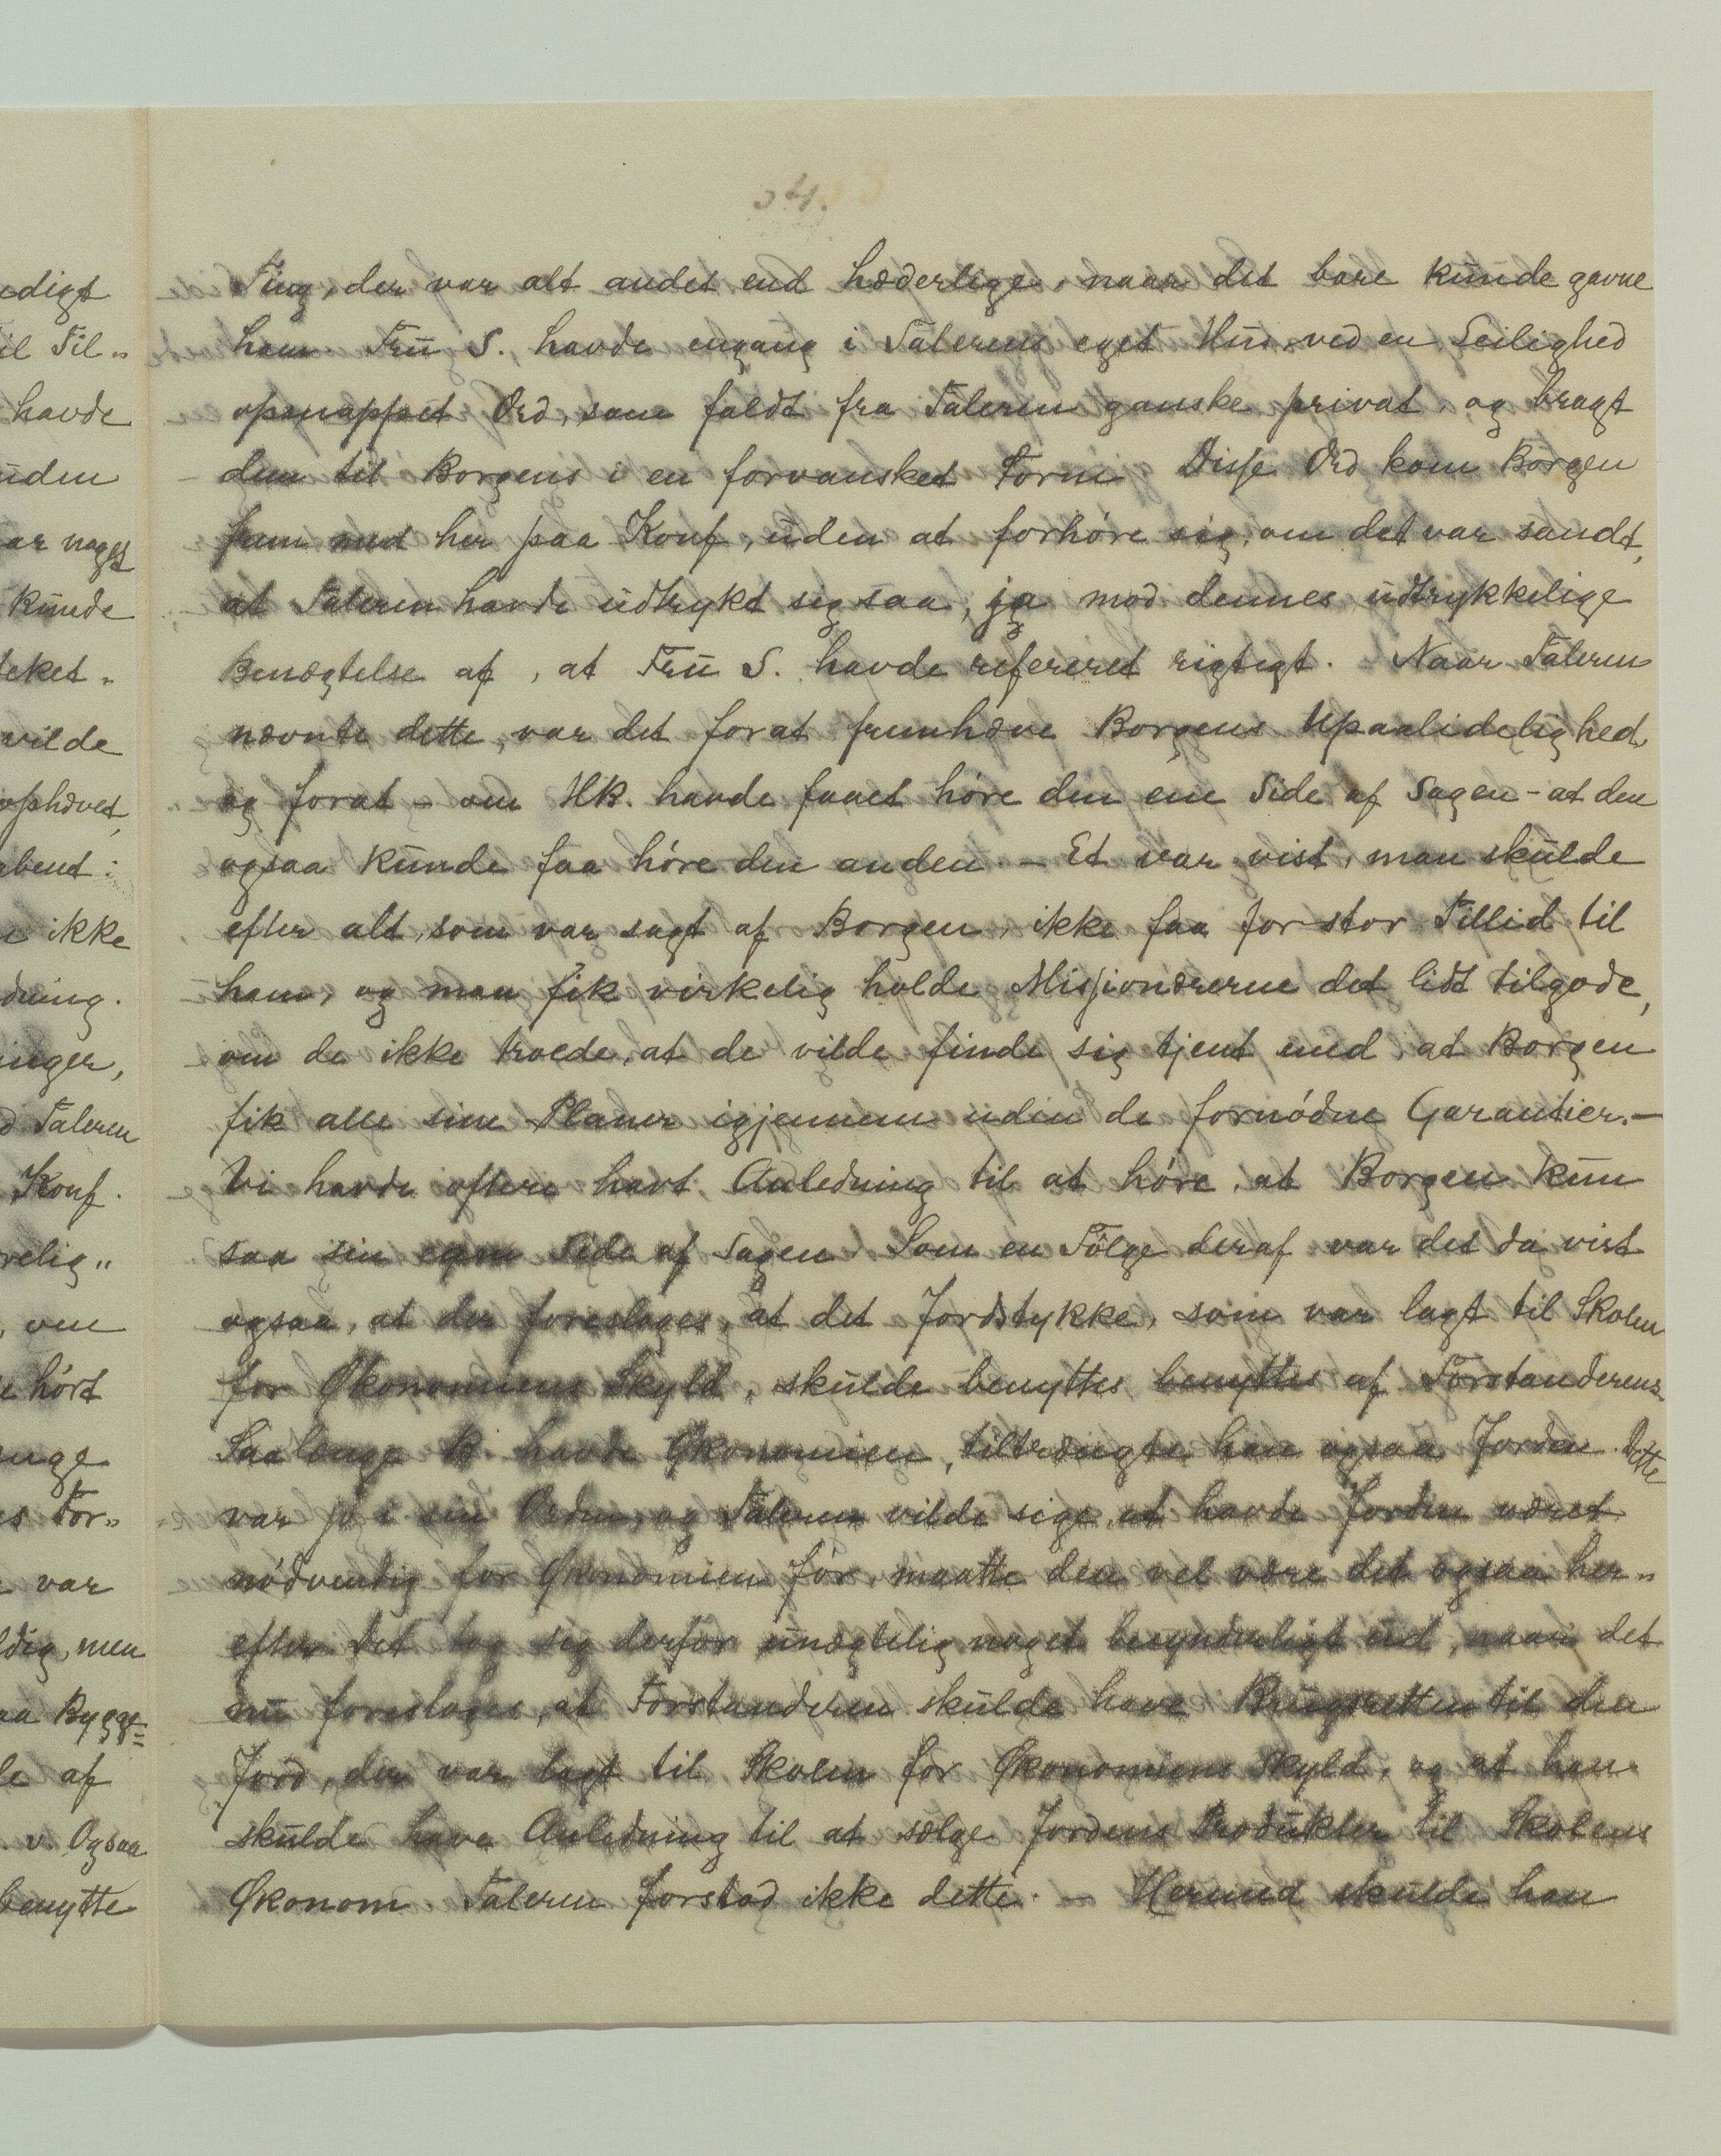 34.
Ting, der var alt andet end hæderlige, naar det bare kunde gavne
ham. Fru S. havde engang i Talerens eget Hus ved en Leilighed
opsnappet Ord, som faldt fra Taleren ganske privat, og bragt
dem til Borgens i en forvansket Form. Disse Ord kom Borgen
frem med her paa Konf, uden at forhøre sig, om det var sandt,
at Taleren havde udtrykt sig saa, ja mod dennes udtrykkelige
Benægtelse af, at Fru S. havde refereret rigtigt. Naar Taleren
nævnte dette, var det forat fremhæve Borgens Upaalidelighed,
og forat - om HK. havde faaet høre den ene Side af Sagen - at den
ogsaa kunde faa høre den anden. - Et var vist, man skulde
efter alt, som var sagt af Borgen, ikke faa for stor Tillid til
ham, og man fik virkelig holde Missionærerne det lidt tilgode,
om de ikke troede, at de vilde finde sig tjent med at Borgen
fik alle sine Planer igjennem uden de fornødne Garantier. -
Vi havde oftere havt Anledning til at høre, at Borgen kun
saa sin egen Side af Sagen. Som en Følge deraf var det da vist
ogsaa, at der foresloges, at det Jordstykke, som var lagt til Skolen
for Økonomiens Skyld, skulde benyttes benyttes af Forstanderens
Saalenge B. havde Økonomien, tiltrængte han ogsaa Jorden. Dette
var jo i sin Orden, og Taleren vilde sige, at havde Jorden været
nødvendig for Økonomien før, maatte den vel være det ogsaa her„
efter. Det tog sig derfor unægtelig noget besynderligt ud, naar det
nu foresloges, at Forstanderen skulde have Brugsretten til den
Jord, der var lagt til Skolen for Økonomiens Skyld, og at han
skulde have Anledning til at sælge Jordens Produkter til Skolens
Økonom. Taleren forstod ikke dette. - Hermed skulde han
edigt
il Til„
havde
uden
ar noget
kunde
vilde
ophævet,
ikke
dning.
inger,
d Taleren
Konf.
velig„
, om
hørt
enge
s For„
var
ldig, men
aa Bygge=
le af
. v. Ogsaa
benytte